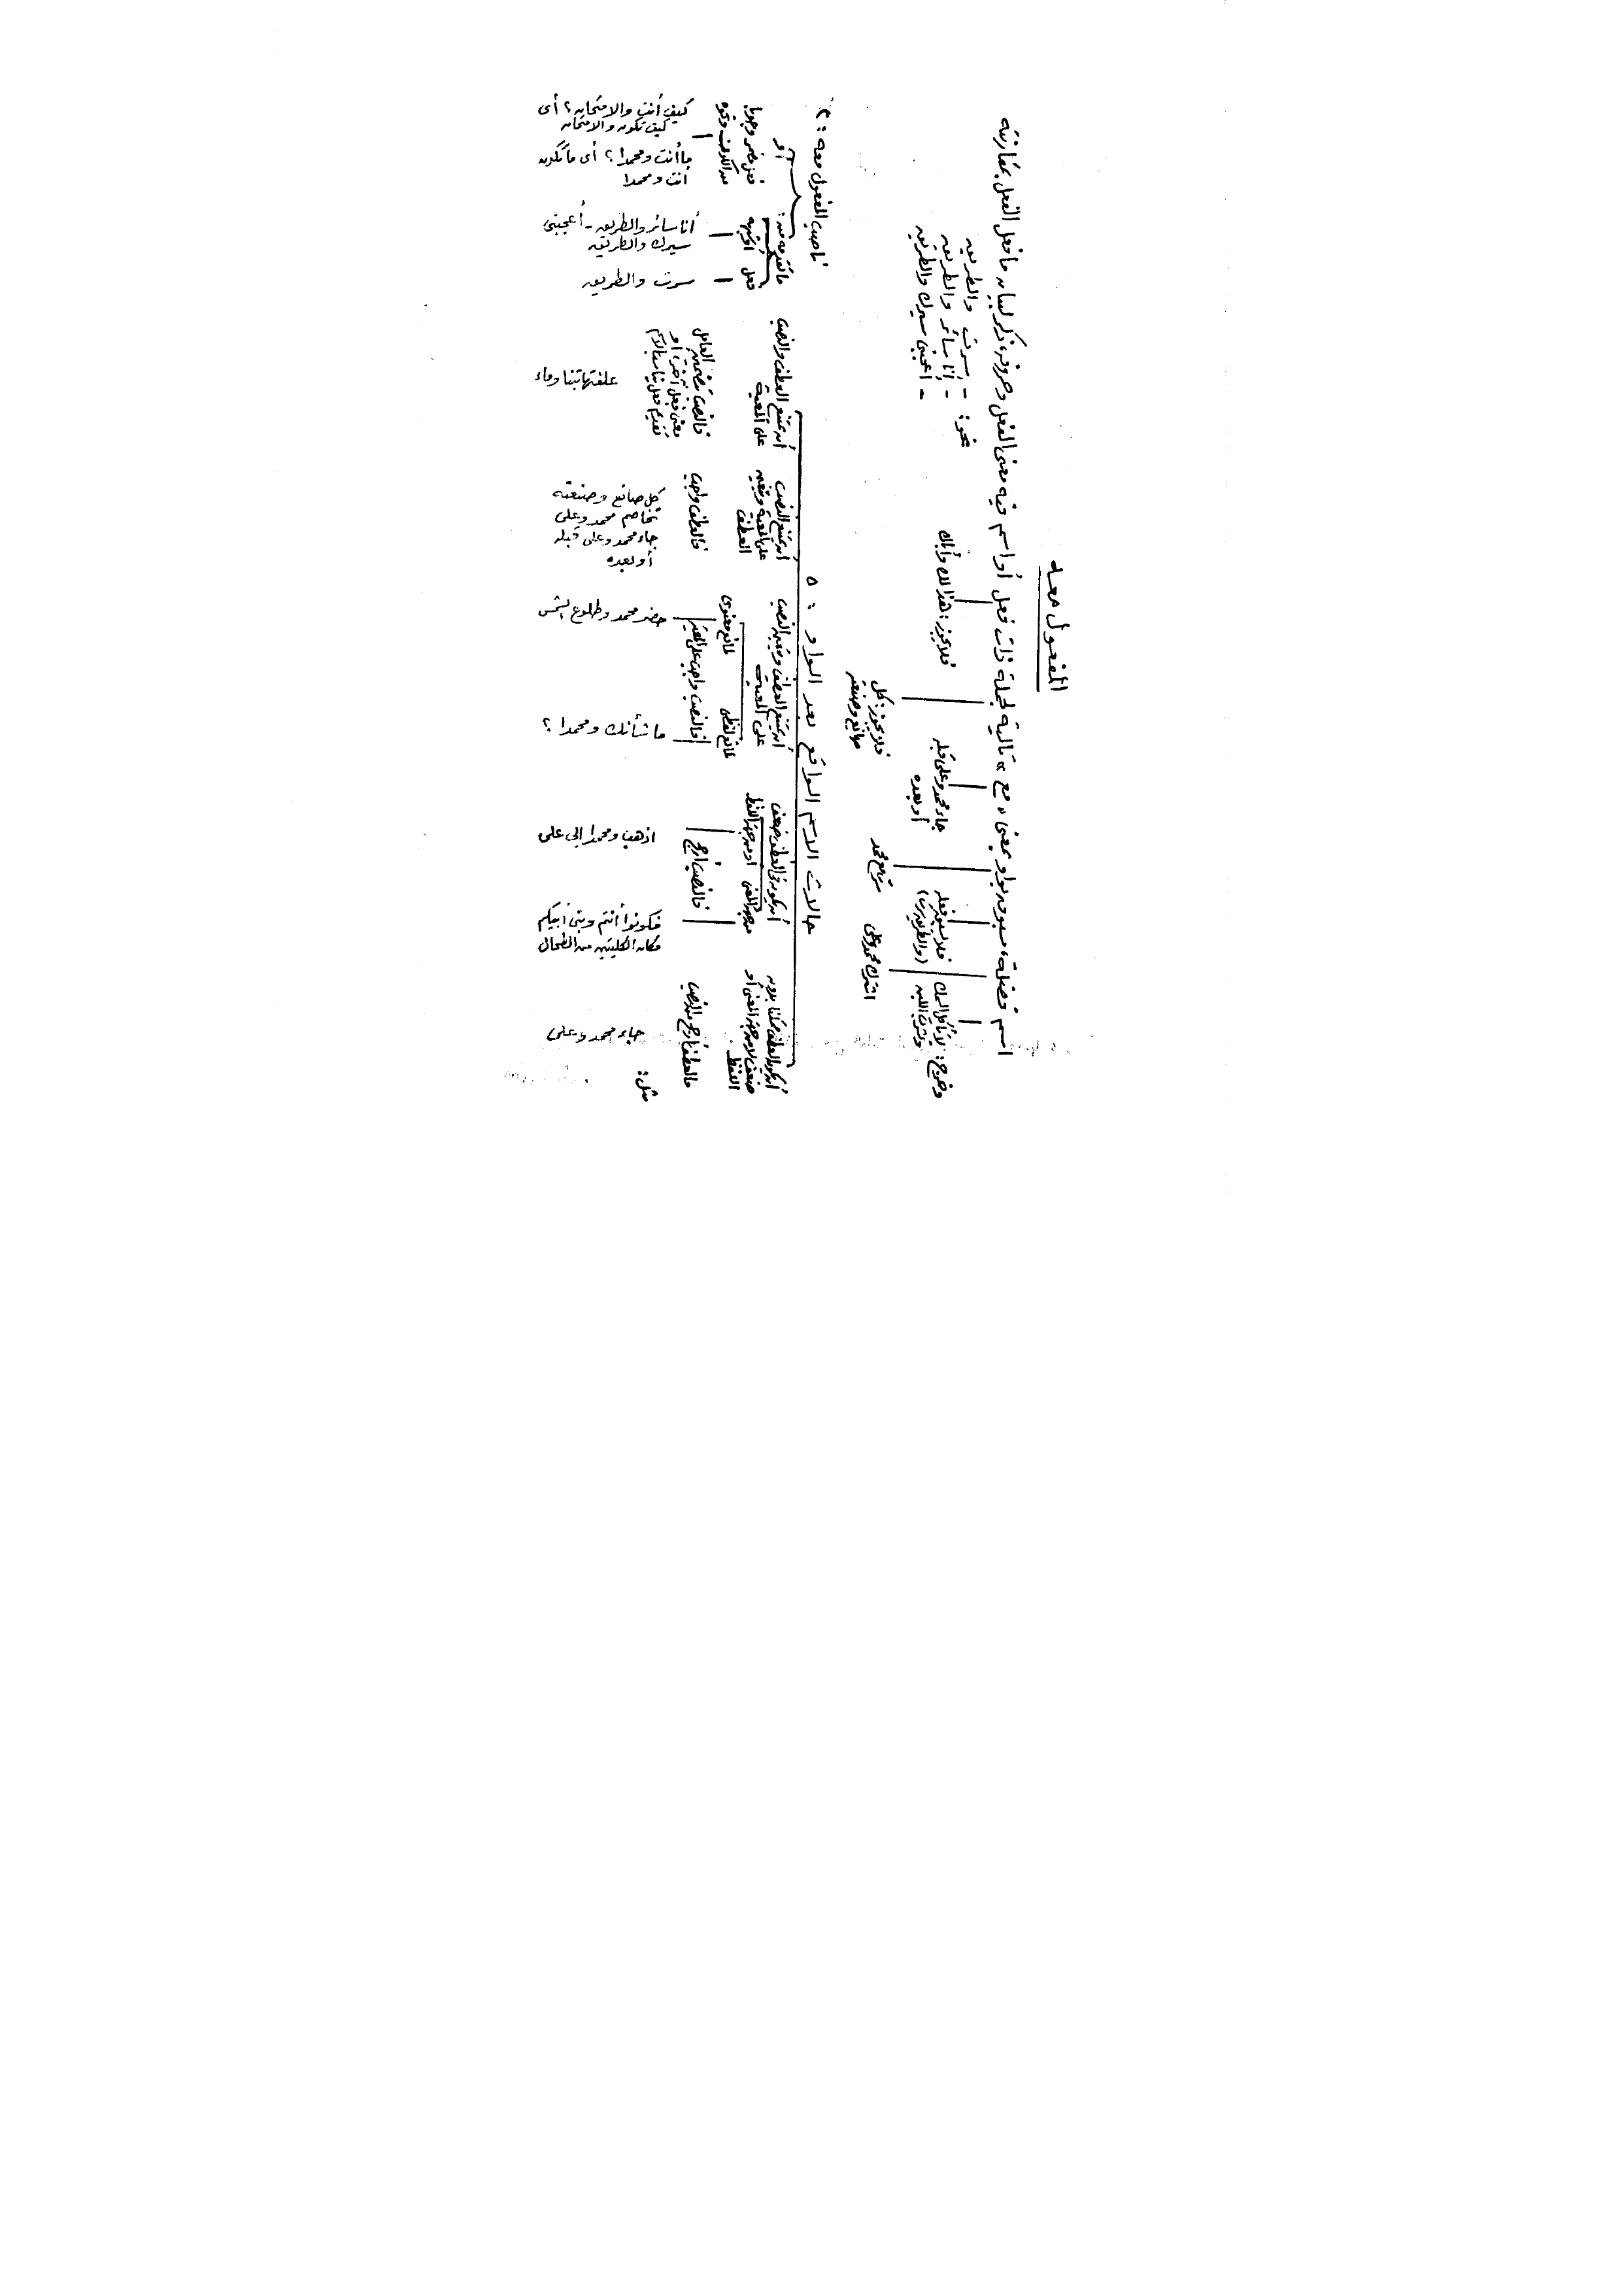 المفعول معه
اسم فضلة، مسبوق بواو بمعنى "مع" تالية لجملة ذات فعل أو اسم فيه معنى الفعل وحروفه، ذكر لبيان ما فعل الفعل بمقارنته
نحو: - سرت والطريق
- أنا سائر والطريق
- أعجبنى سيرك والطريق
وخرج: لا تأكل السمك
وتشرب اللبن
اشترك محمد وعلى
(والطريق سرت)
سرت مع محمد
جاء محمد وعلى قبله
أو بعده
فلا يجوز: كل
صانع وصنعته
فلا يجوز: هذا لك وأباك
حالات الاسم الواقع بعد الواو: ٥
أن يكون العطف ممكنا بدون
ضعف لا من جهة المعنى أو
اللفظ
فالعطف أرجح من النصب
مثل:
جاء محمد وعلى
أن يكون فى العطف ضعف
من جهة المعنى
أو من جهة اللفظ
فالنصب أرجح
فكونوا أنتم وبنى أبيكم
مكان الكليتين من الطحال
اذهب ومحمدا إلى على
أن يمتنع العطف ويتعين النصب
على المعية
لمانع لفظى
لمانع معنوى
فالنصب واجب على المعية
ما شأنك ومحمدا؟
حضر محمد وطلوع الشمس
أن يمتنع النصب
على المعية ويتعين
العطف
فالعطف واجب
كل صانع وصنعته
تخاصم محمد وعلى
جاء محمد وعلى قبله
أو بعده
أن يمتنع العطف والنصب
على المعية
فالنصب بتضمين العامل
معنى فعل آخر، أو
تقديم فعل يناسب الاسم
علفتها تبنا وماء
ناصب المفعول معه:
ما تقدمه من:
فعل
أو شبهه
أو
فعل مضمر وجوبا
من الكون ونحوه
سرت والطريق
أنا سائر والطريق - أعجبنى
سيرك والطريق
ما أنت ومحمدا؟ أى ما تكون
أنت ومحمدا
كيف أنت والامتحان؟ أى
كيف تكون والامتحان